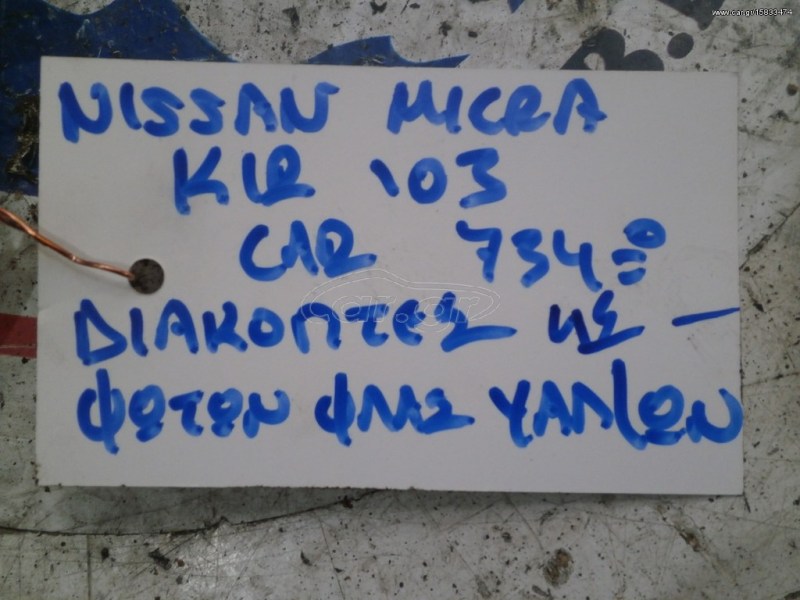 www.car.gr/15833474
NISSAN MICRA
K12 '03
CAR 734=°
ΔΙΑΚΟΠΤΕΣ ΜΕ —
ΦΩΤΩΝ ΦΛΑΣ ΥΑΛ/ΩΝ
car.gr